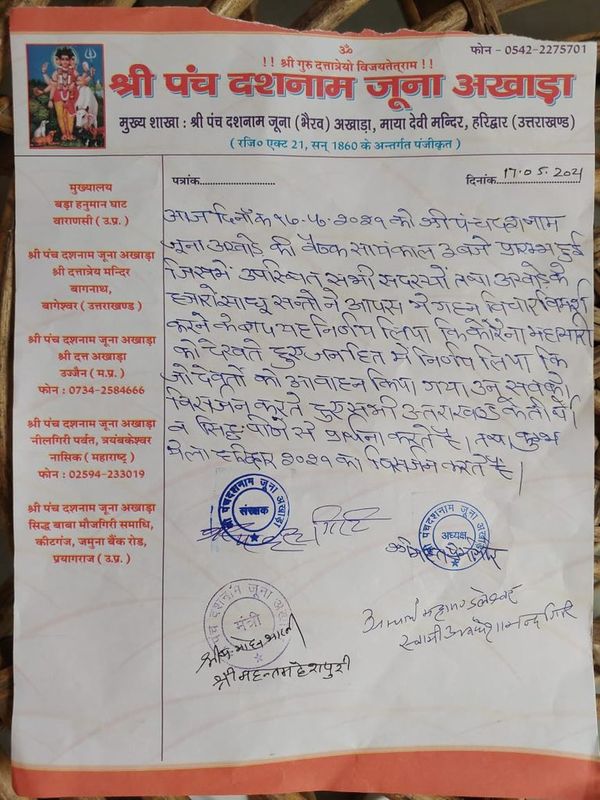 ॐ
!! श्री गुरु दत्तात्रेयो विजयतेत्राम !!
फोन - 0542-2275701
श्री पंच दशनाम जूना अखाड़ा
मुख्य शाखा : श्री पंच दशनाम जूना (भैरव) अखाड़ा, माया देवी मन्दिर, हरिद्वार (उत्तराखण्ड)
( रजि० एक्ट 21, सन् 1860 के अन्तर्गत पंजीकृत )
पत्रांक..................... दिनांक.. 17.05.2021
मुख्यालय
बड़ा हनुमान घाट
वाराणसी (उ.प्र.)
श्री पंच दशनाम जूना अखाड़ा
श्री दत्तात्रेय मन्दिर
बागनाथ,
बागेश्वर (उत्तराखण्ड )
श्री पंच दशनाम जूना अखाड़ा
श्री दत्त अखाड़ा
उज्जैन (म.प्र.)
फोन : 0734-2584666
श्री पंच दशनाम जूना अखाड़ा
नीलगिरी पर्वत, त्रयंबकेश्वर
नासिक ( महाराष्ट्र )
फोन : 02594-233019
श्री पंच दशनाम जूना अखाड़ा
सिद्ध बाबा मौजगिरी समाधि,
कीटगंज, जमुना बैंक रोड,
प्रयागराज ( उ.प्र. )
आज दिनाँक को श्री पंचदशनाम
जूना अखाड़े की बैठक सायंकाल ३ बजे प्रारम्भ हुई
जिसमें उपस्थित सभी सदस्यों तथा अखाड़े के
हजारो साधू सन्तों ने आपस में गहन विचार विमर्श
करने के बाद यह निर्णय लिया कि कोरोना महामारी
को देखते हुए जन हित में निर्णय लिया कि
जो देवतों को आवाहन किया गया उन सबको
विसर्जन करते हुए सभी उत्तराखण्ड के तीर्थो
व प्रार्थना करते है। तथा कुम्भ
मेला हरिद्वार २०२१ का विसर्जन करते है।
श्री पंचदशनाम जूना अखाड़ा
संरक्षक
श्री पंचदशनाम जूना अखाड़ा
अध्यक्ष
पंच दशनाम जूना अखाड़ा
मंत्री
श्री महन्त महेशपुरी
आचार्य महामण्डलेश्वर
स्वामी अवधेशानन्द गिरि